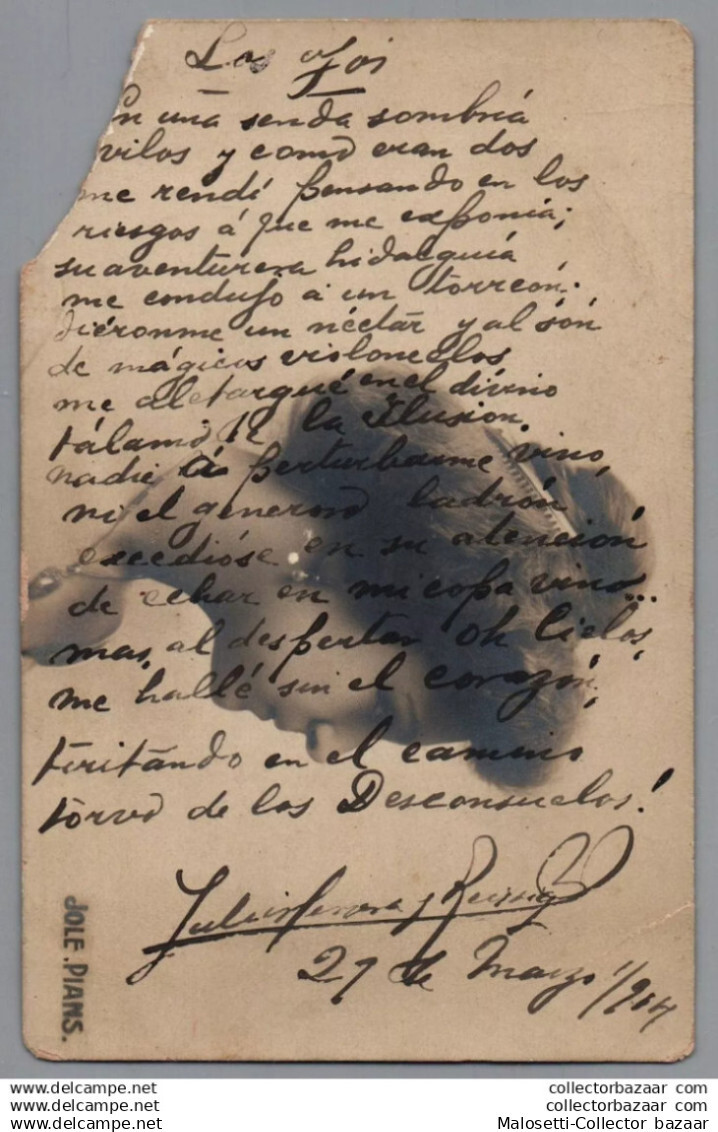 Los Joi
En una senda sombría
vilos y como eran dos
me rendí pensando en los
riesgos á que me exponía;
su aventurera hidalguía
me condujo á un torreón:
diéronme un néctar y al són
de mágicos violoncelos
me aletargué en el divino
tálamo de la Ilusion.
nadie á perturbarme vino,
ni el generoso ladrón
excedióse en su atención
de echar en mi copa vino...
mas, al despertar oh Cielos,
me hallé sin el corazón,
tiritando en el camino
torvo de los Desconsuelos!
Julio Herrera y Reissig
29 de Marzo 1/904
JOLE. PIAMS.
collectorbazaar.com
collectorbazaar.com
collectorbazaar.com
collectorbazaar.com
collectorbazaar.com
Malosetti-Collector bazaar